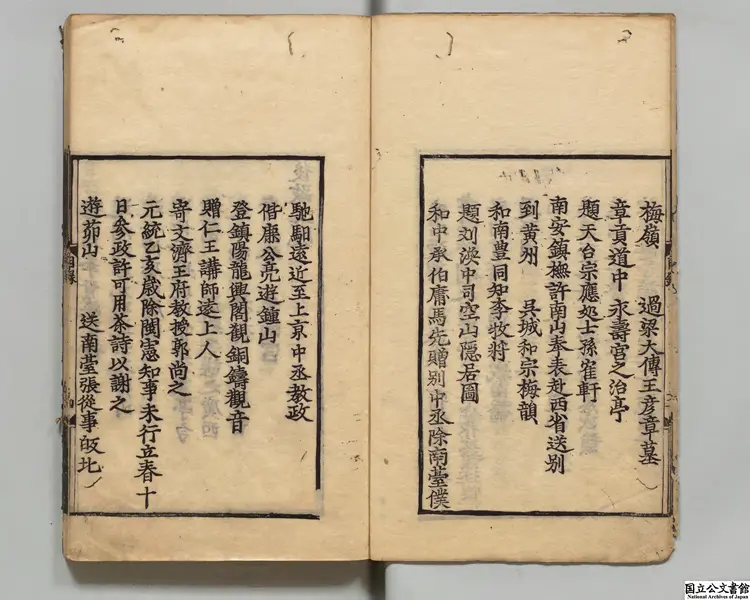 梅嶺 過梁大傅王彦章墓
章貢道中 永壽宮之治亭
題天台宗應処士孫寉軒
南安鎮撫許南山奉表赴西省送别
到黄州 呉城和宗梅韻
和南豊同知李牧将
題刘渙中司空山隠居圖
和中丞伯庸馬先贈别中丞除南䑓僕
馳駔遠近至上京中丞教政
偕廉公亮遊鍾山
登鎮陽龍興閣觀銅鑄觀音
贈仁王講師遠上人
寄文濟王府教授郭尚之
元統乙亥歳除閩憲知事未行立春十
日参政許可用茶詩以謝之
遊茆山 送南䑓張從事叔北
目録
国立公文書館
National Archives of Japan